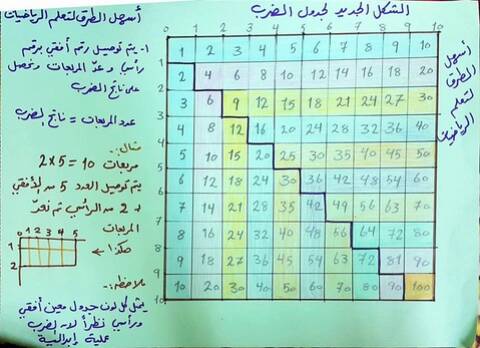 الشكل الجديد لجدول الضرب
أسهل الطرق لتعلم الرياضيات
١- يتم توصيل رقم أفقي برقم
رأسي وعدّ المربعات ونحصل
على ناتج الضرب
عدد المربعات = ناتج الضرب
مثال:-
2x5 = 10 مربعات
يتم توصيل العدد 5 من الأفقي
و 2 من الرأسي ثم نعدّ
المربعات
هكذا
0 1 2 3 4 5
1
2
ملاحظة:-
يمثل كل لون جدول معين أفقي
ورأسي نظراً لأن الضرب
عملية إبدالية
0 1 2 3 4 5 6 7 8 9 10
1 1 2 3 4 5 6 7 8 9 10
2 2 4 6 8 10 12 14 16 18 20
3 3 6 9 12 15 18 21 24 27 30
4 4 8 12 16 20 24 28 32 36 40
5 5 10 15 20 25 30 35 40 45 50
6 6 12 18 24 30 36 42 48 54 60
7 7 14 21 28 35 42 49 56 63 70
8 8 16 24 32 40 48 56 64 72 80
9 9 18 27 36 45 54 63 72 81 90
10 10 20 30 40 50 60 70 80 90 100
أسهل
الطرق
لتعلم
الرياضيات